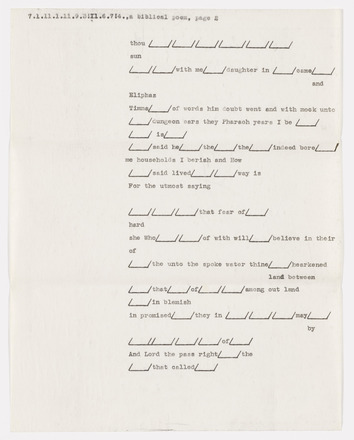 7.1.11.1.11.9.3!11.6.7!4.,a biblical poem, page 2
thou /____/____/____/____/____/____/
sun
/____/____/with me/____/daughter in /____/came/____/
and
Eliphaz
Timna/____/of words him doubt went and with mock unto
/____/dungeon ears they Pharaoh years I be /____/
/____/ is/____/
/____/said he/____/the/____/the/____/indeed bore/____/
me households I perish and Now
/____/said lived/____/____/way is
For the utmost saying
/____/____/____/that fear of/____/
hard
she Who/____/____/of with will/____/believe in their
of
/____/the unto the spoke water thine/____/hearkened
land between
/____/that/____/of/____/____/among out land
/____/in blemish
in promised/____/they in /____/____/____/may/____/
by
/____/____/____/____/of/____/
And Lord the pass right/____/the
/____/that called/____/